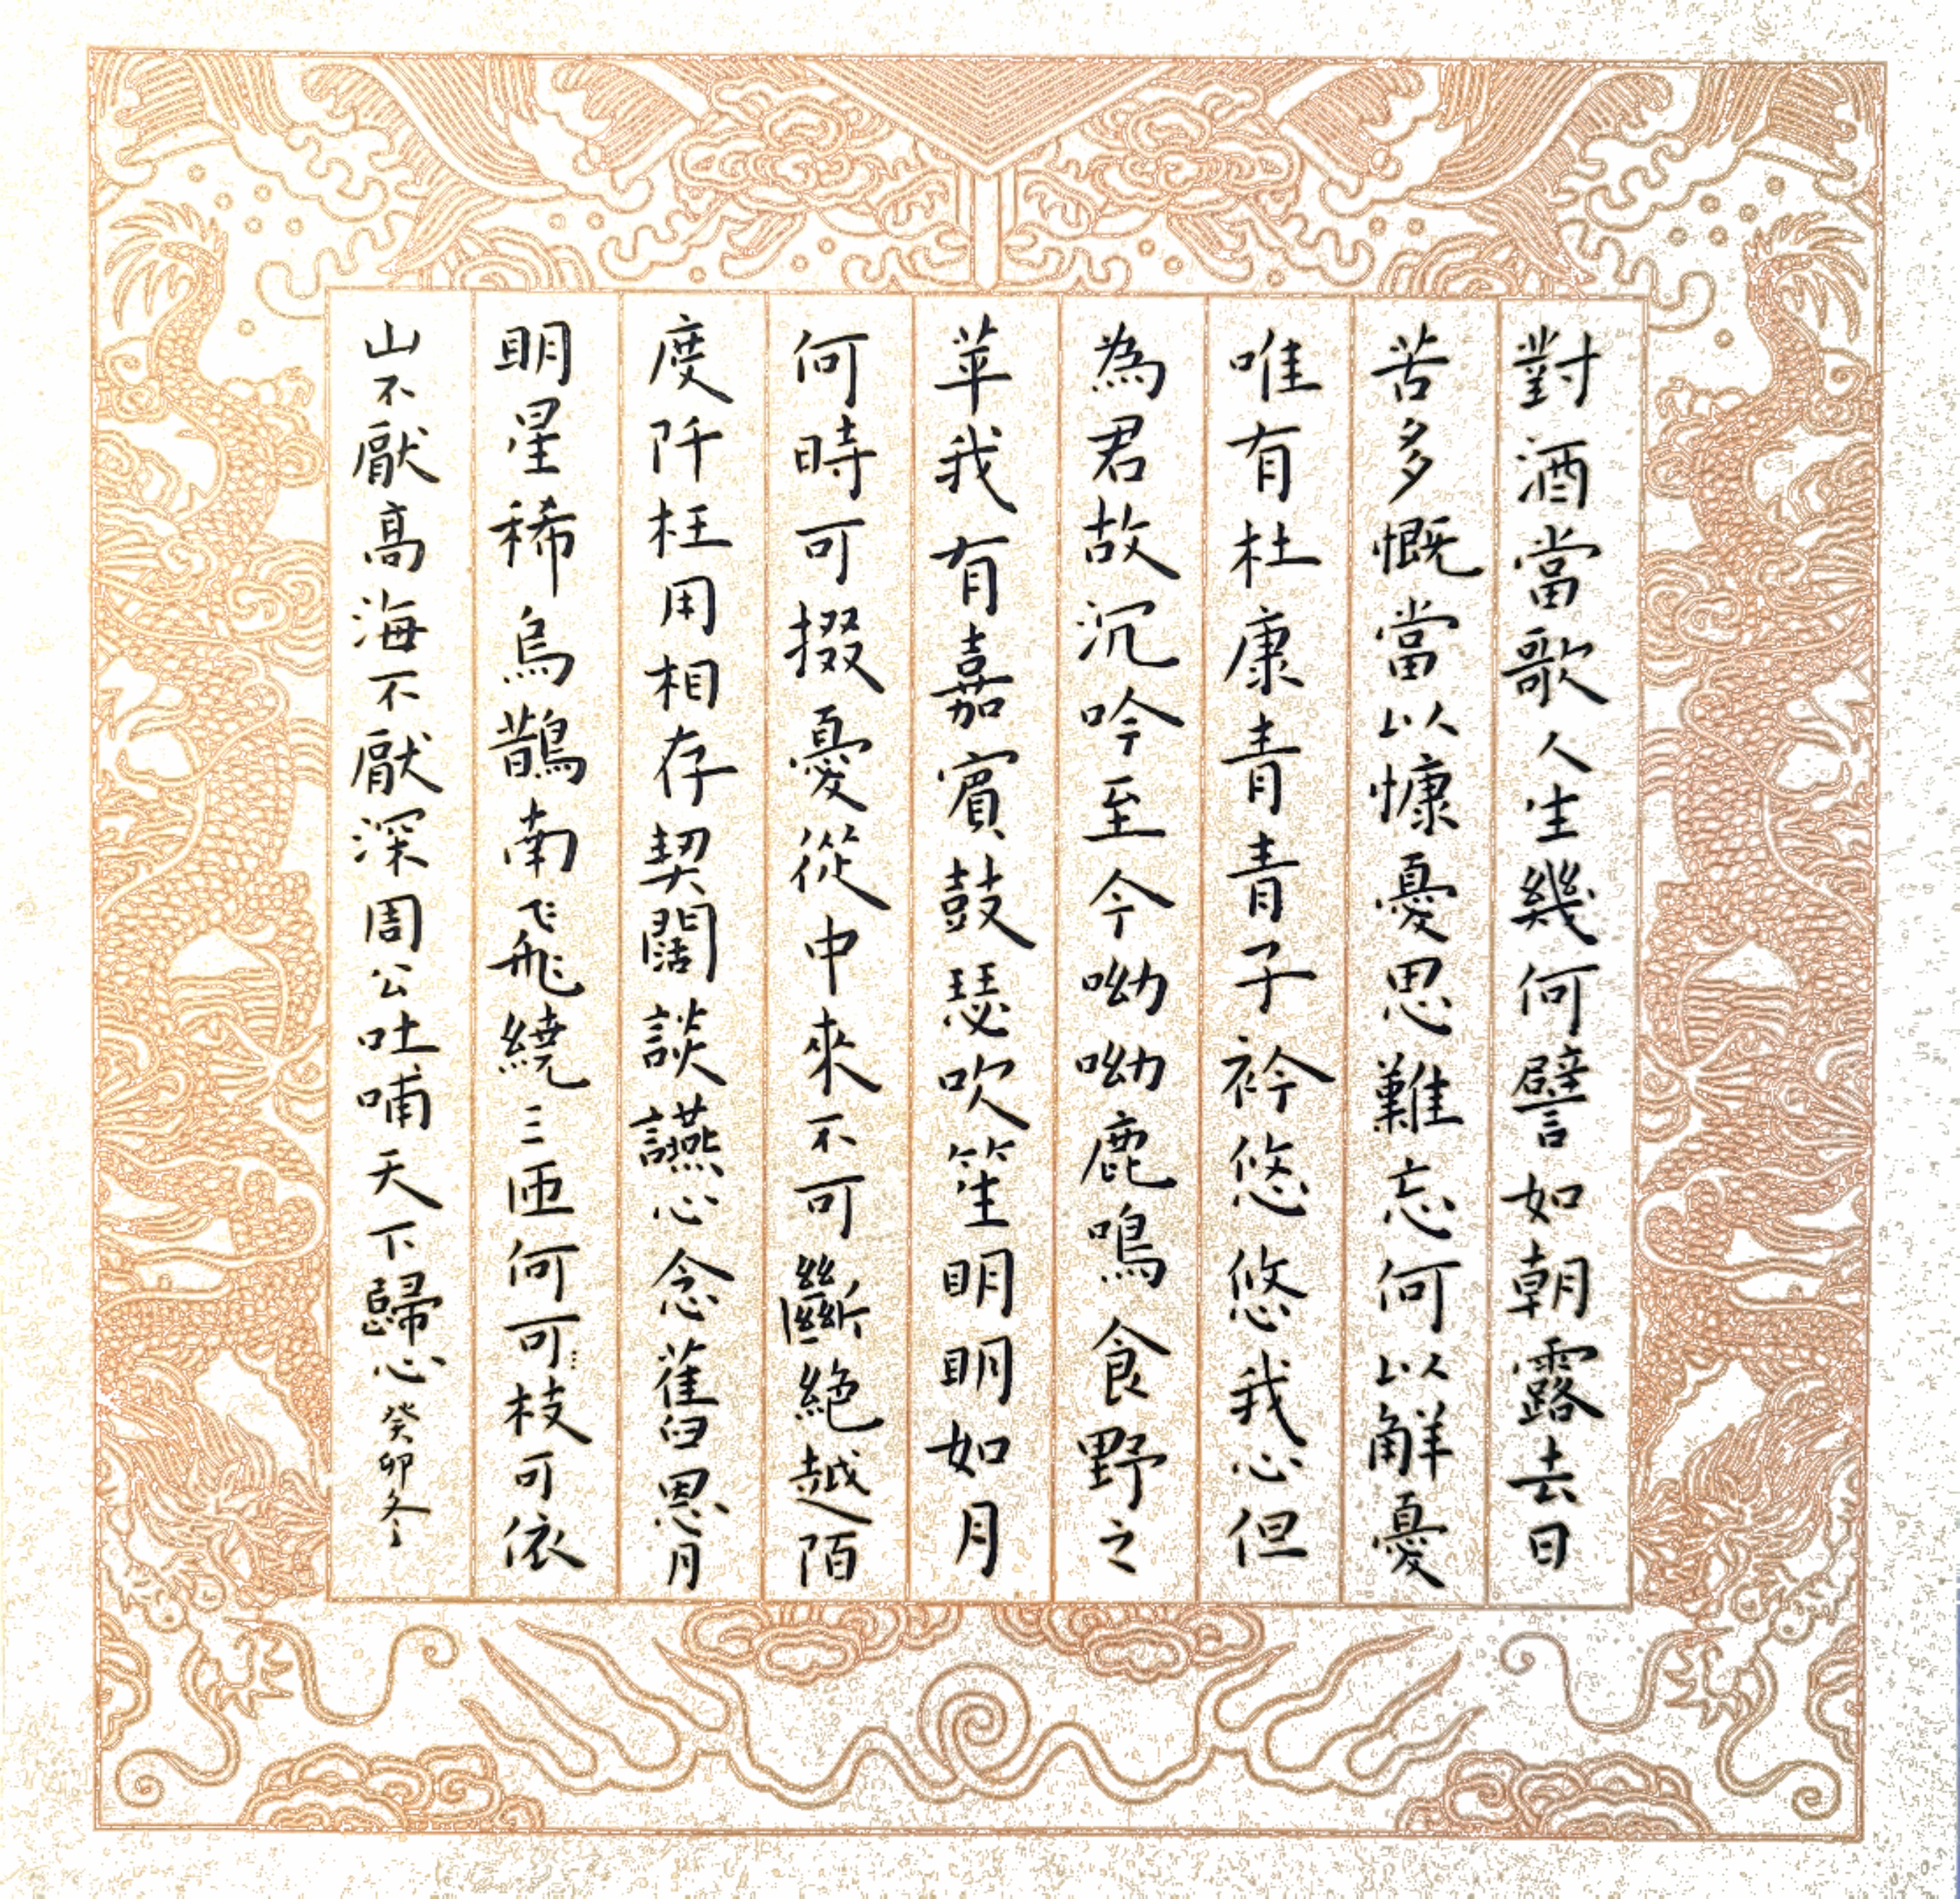 對酒當歌人生幾何譬如朝露去日
苦多慨當以慷憂思難忘何以解憂
唯有杜康青青子衿悠悠我心但
為君故沉吟至今呦呦鹿鳴食野之
苹我有嘉賓鼓瑟吹笙明明如月
何時可掇憂從中來不可斷絕越陌
度阡枉用相存契闊談讌心念舊恩月
明星稀烏鵲南飛繞三匝何可枝可依
山不厭高海不厭深周公吐哺天下歸心癸卯冬